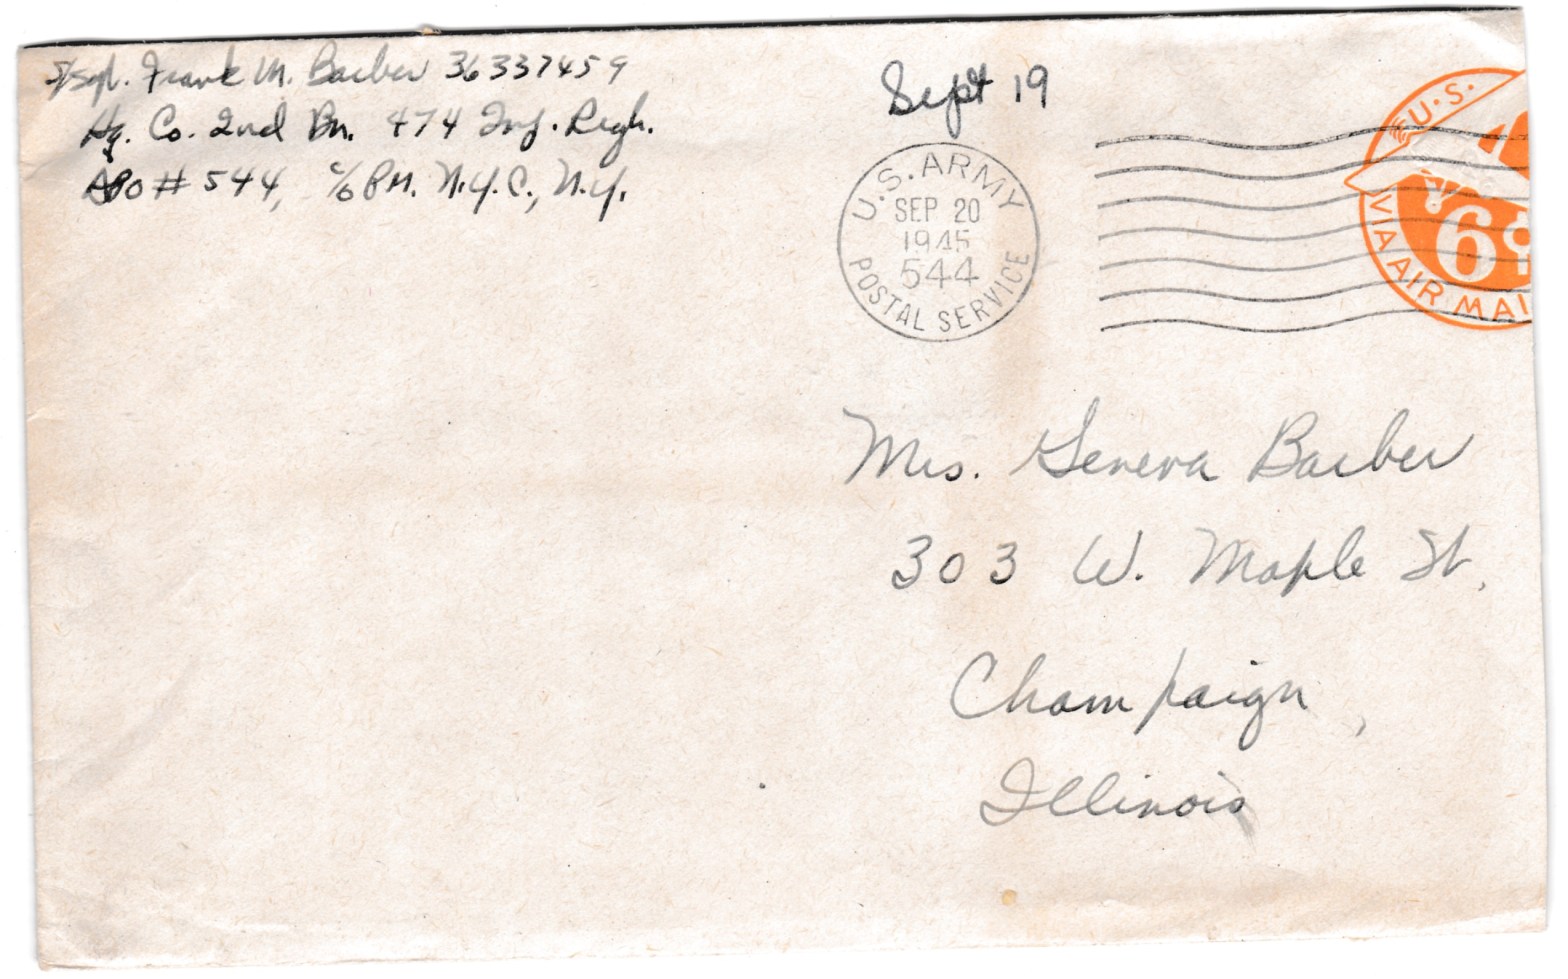 S/Sgt. Frank M. Barber 36337459
Hq. Co. 2nd Bn. 474 Inf. Regt.
APO # 544, c/o P.M. N.Y.C., N.Y.
Sept 19
U.S. ARMY
SEP 20
1945
544
POSTAL SERVICE
U.S.
6¢
VIA AIR MAI
Mrs. Geneva Barber
303 W. Maple St.
Champaign,
Illinois